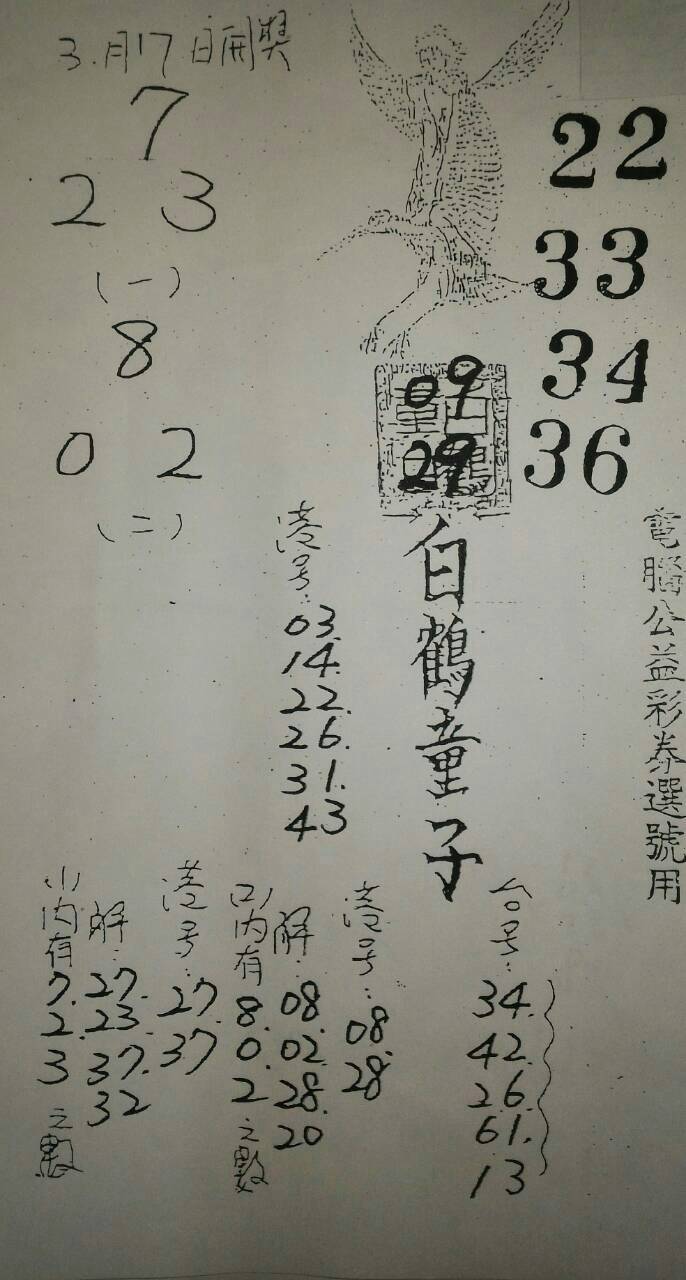 3.月17日開獎
7
2 3
(一)
8
0 2
(二)
22
33
34
36
09
29
白鶴童子
電腦公益彩券選號用
港号:
03.
14.
22.
26.
31.
43
台号:
34.
42.
26.
61.
13
港号:
08.
28
解:
08.
02.
28.
20
(2)內有
8.
0.
2
之數
港号:
27.
37
解:
27.
23.
37.
32
(1)內有
7.
2.
3
之數